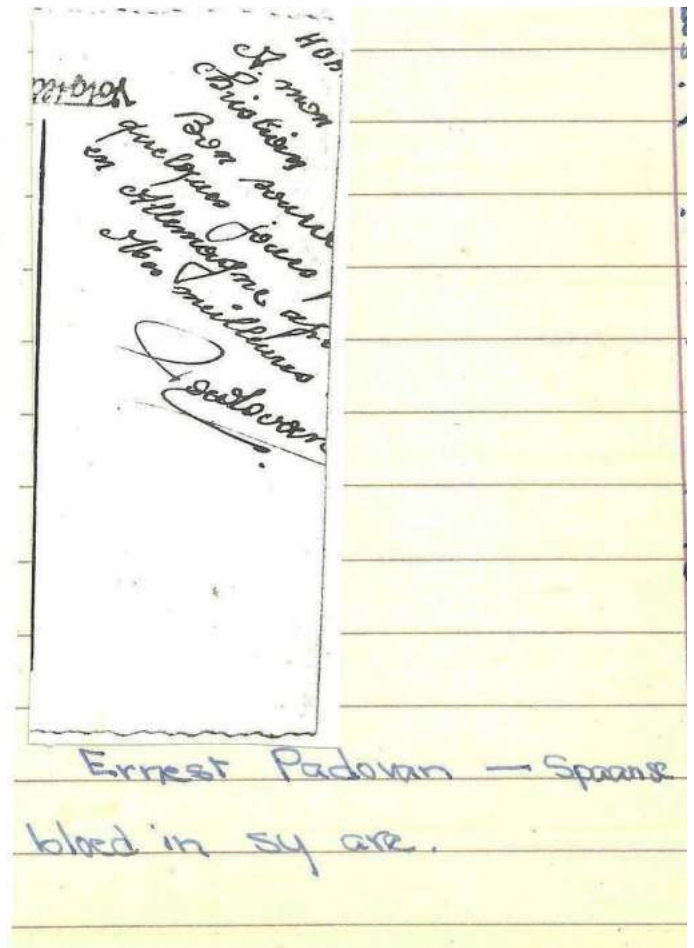 A mon
Christian
Bon
quelques jours
en Allemagne
meilleures
Padovan
Ernest Padovan — Spaanse
bloed in sy are.